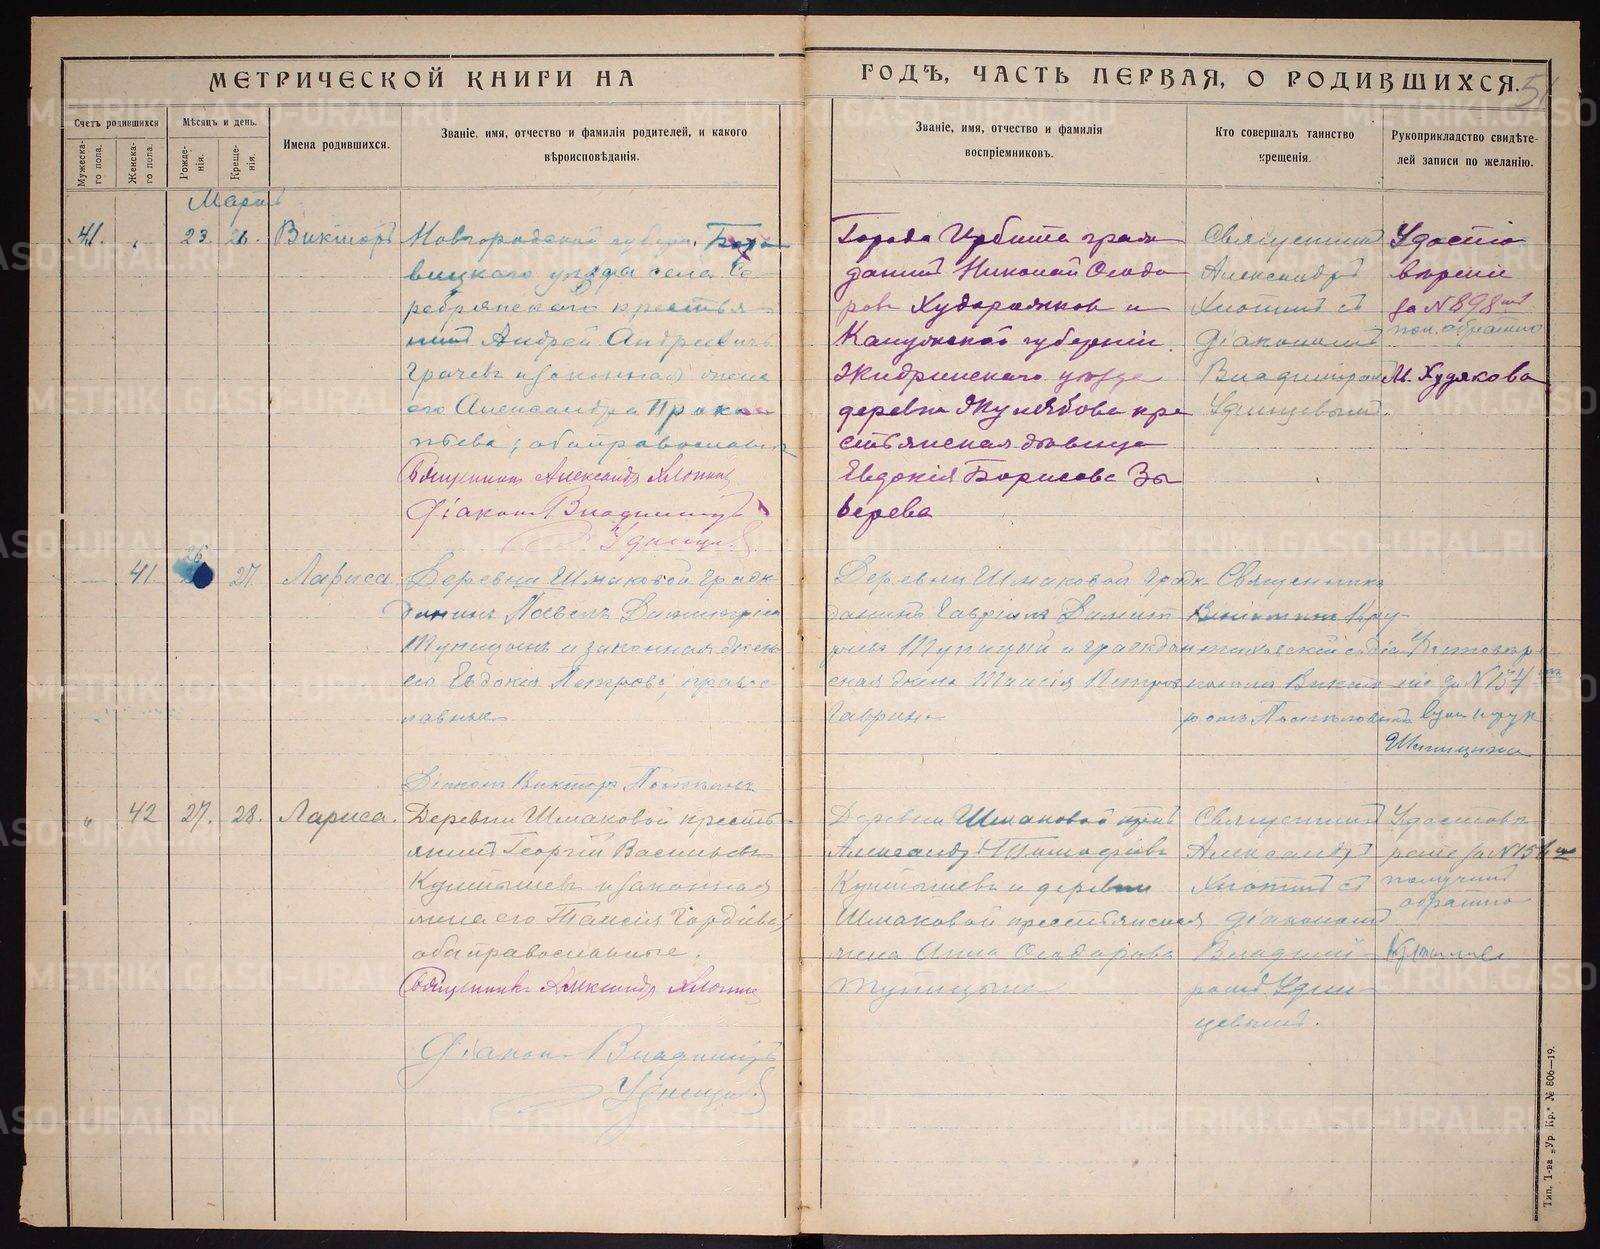 МЕТРИЧЕСКОЙ КНИГИ НА
ГОДЪ, ЧАСТЬ ПЕРВАЯ, О РОДИВШИХСЯ.
51
Счетъ родившихся
Мѣсяцъ и день.
Мужеска-
го пола.
Женска-
го пола.
Рожде-
нія.
Креще-
нія.
Имена родившихся.
Званіе, имя, отчество и фамилія родителей, и какого
вѣроисповѣданія.
Званіе, имя, отчество и фамилія
воспріемниковъ.
Кто совершалъ таинство
крещенія.
Рукоприкладство свидѣте-
лей записи по желанію.
Мартъ
41.
23.
26.
Викторъ
Новгородской губерн. Боро
вицкаго уѣзда села Се
ребрянскаго крестья
нинъ Андрей Андреевичъ
Грачевъ и законная жена
его Александра Проко
пьева; оба православн
Священникъ Александръ Хлопинъ
Діаконъ Владиміръ
Удинцевъ
Города Ирбита граж
данинъ Николай Ѳеодо
ровъ Худорожковъ и
Калужской губерніи
Жидринскаго уѣзда
деревни кре
стьянская дѣвица
Евдокія Борисова Зв
ѣрева
Священникъ
Александръ
Хлопинъ съ
Діакономъ
Владиміромъ
Удинцевымъ.
Удосто
вѣреніе
за № 898
пол. обратно
М. Худякова
41
26
27.
Лариса
Деревни Шмаковой граж
данинъ Павелъ Димитріев
Тупицынъ и законная жена
его Евдокія Петрова, правос
лавные
Діаконъ Виктор
Деревни Шмаковой граж
данинъ Гавріилъ Димит
ріевъ Тупицын и граждан
ская жена Таисія Петров
Гаврин
Священник
Виктo
ромъ
Удостовѣре
ніе за № 154
Шипицина
42
27.
28.
Лариса.
Деревни Шмаковой кресть
янинъ Георгій Васильевъ
Култышевъ и законная
жена его Таисія Гордѣева
оба православные.
Священникъ Александръ Хлопинъ
Діаконъ Владиміръ
Удинцевъ
Деревни Шмаковой крест
Александръ Тимофѣевъ
Култышевъ и деревни
Шмаковой крестьянская
жена Анна Ѳеодорова
Тупицына
Священникъ
Александръ
Хлопинъ съ
діакономъ
Владимі-
ромъ Удин-
цевымъ.
Удостовѣ
реніе за № 156
получилъ
обратно
Тип. Т-ва „Ур. Кр." № 806—19.
METRIKI.GASO-URAL.RU